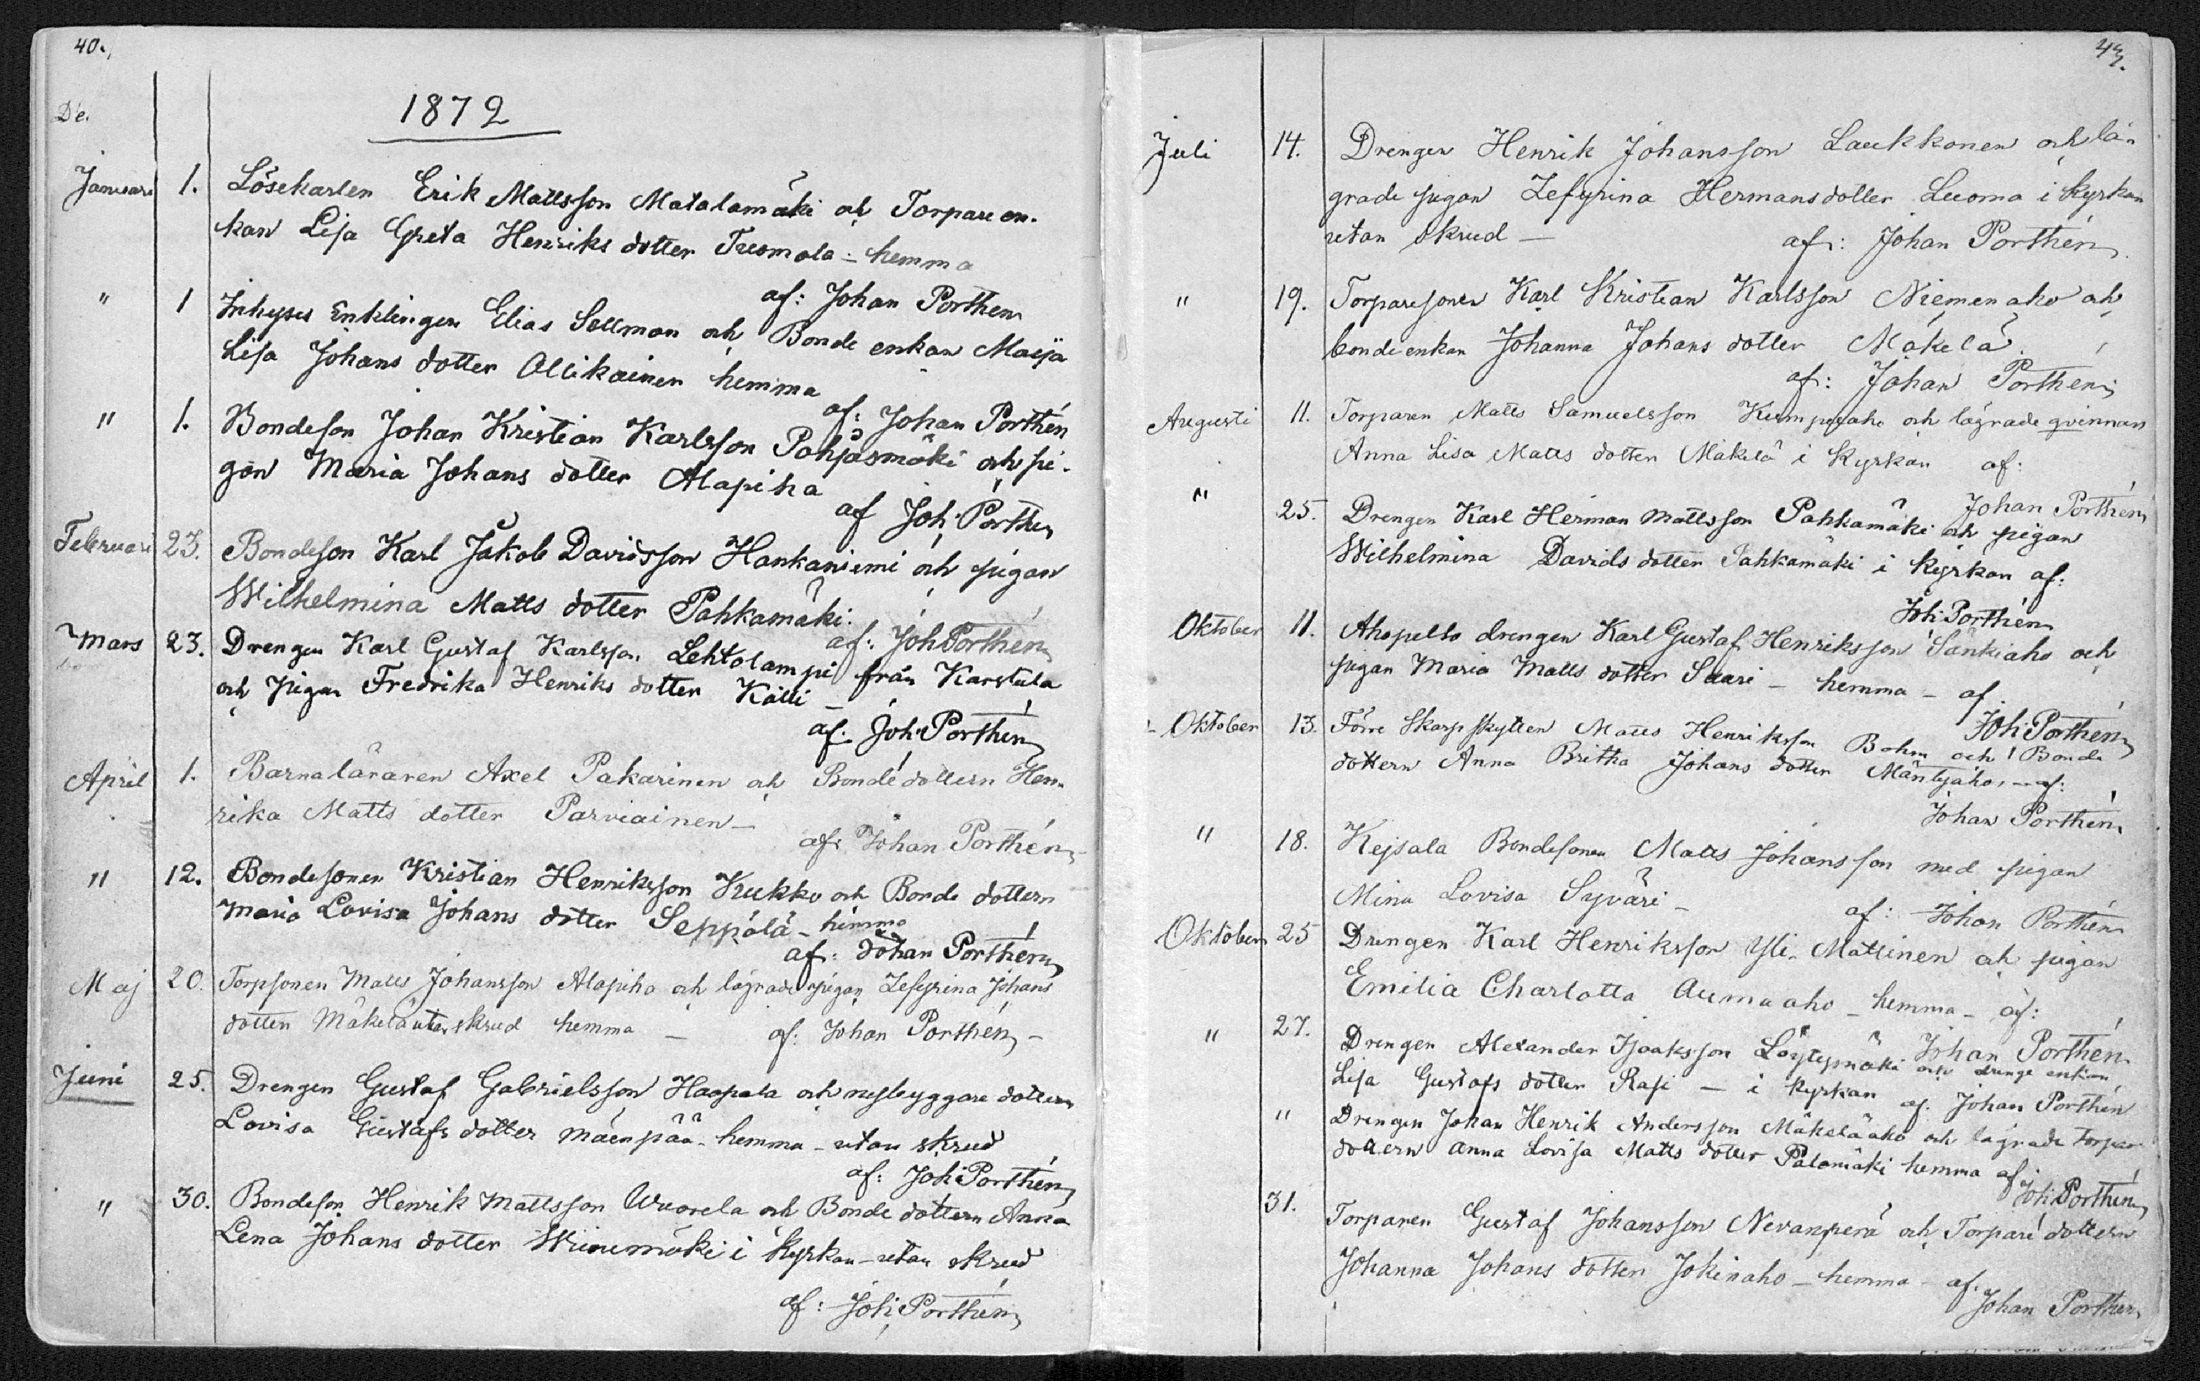 40.
De.
1872
Januari 1. Lösekarlen Erik Mattsson Matalamäki och Torpare en-
kan Lisa Greta Henriks dotter Tuomala - hemma
af: Johan Porthén
" 1 Inhyses Enklingen Elias Sellman och Bonde enkan Maija
Lisa Johans dotter Ollikainen hemma
af: Johan Porthén
" 1. Bondeson Johan Kristian Karlsson Pohjasmäki och pi-
gan Maria Johans dotter Alapiha
af Joh: Porthén
Februari 23. Bondeson Karl Jakob Davidsson Hankaniemi och pigan
Wilhelmina Matts dotter Pahkamäki.
af: Joh Porthén
Mars 23. Drengen Karl Gustaf Karlsson Lehtolampi från Karstula
och pigan Fredrika Henriks dotter Källi -
af: Joh: Porthén
April 1. Barnaläraren Axel Pakarinen och Bonde dottern Hen-
rika Matts dotter Parviainen -
af: Johan Porthén
" 12. Bondesonen Kristian Henriksson Kukko och Bonde dottern
Maria Lovisa Johans dotter Seppälä - hemma
af: Johan Porthén
Maj 20. Torpsonen Matts Johansson Alapiha och lägrade pigan Zefyrina Johans
dotter Mäkelä utan skrud hemma - af: Johan Porthén -
Juni 25. Drengen Gustaf Gabrielsson Haapala och nybyggare dottern
Lovisa Gustafs dotter Mäenpää - hemma - utan skrud
af: Joh: Porthén
" 30. Bondeson Henrik Mattsson Wuorela och Bonde dottern Anna
Lena Johans dotter Wiinimäki i kyrkan - utan skrud
af: Joh: Porthén
43.
Juli 14. Drengen Henrik Johansson Laukkonen och lä-
grade pigan Zefyrina Hermans dotter Luoma i kyrkan
utan skrud - af: Johan Porthén
" 19. Torparesonen Karl Kristian Karlsson Niemenaho och
bonde enkan Johanna Johans dotter Mäkelä
af: Johan Porthén
Augusti 11. Torparen Matts Samuelsson Kumpuaho och lägrade qvinnan
Anna Lisa Matts dotter Mäkelä i kyrkan af:
Johan Porthén
" 25. Drengen Karl Herman Mattsson Pahkamäki och pigan
Wilhelmina Davids dotter Pahkamäki i kyrkan af:
Joh: Porthén
Oktober 11. Ahopelto drengen Karl Gustaf Henriksson Sänkiaho och
pigan Maria Matts dotter Saari - hemma - af
Joh: Porthén
Oktober 13. Förre Skarpskytten Matts Henriksson Bohm och Bonde
dottern Anna Britha Johans dotter Mäntyaho, - af:
Johan Porthén
" 18. Kejsala Bondesonen Matts Johansson med pigan
Mina Lovisa Syväri - af: Johan Porthén
Oktober 25 Drengen Karl Henriksson Yli-Mattinen och pigan
Emilia Charlotta Aumaaho - hemma - af:
Johan Porthén
" 27. Drengen Alexander Isaaksson Löytömäki och drenge enkan
Lisa Gustafs dotter Rasi - i kyrkan af: Johan Porthén
" Drengen Johan Henrik Andersson Mäkeläaho och lägrade torpare
dottern Anna Lovisa Matts dotter Palomäki hemma af:
Joh: Porthén
31. Torparen Gustaf Johansson Nevanperä och Torpare dottern
Johanna Johans dotter Jokinaho - hemma - af:
Johan Porthén